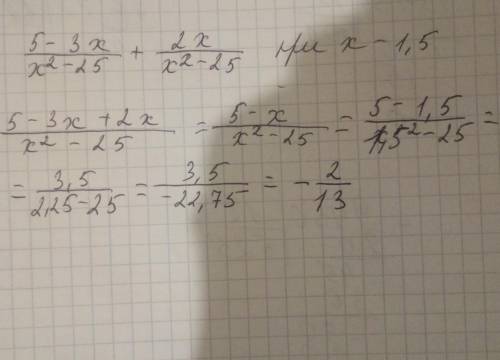 (5 - 3x)/(x² - 25) + (2x)/(x² - 25) при x - 1,5
(5 - 3x + 2x)/(x² - 25) = (5 - x)/(x² - 25) = (5 - 1,5)/(1,5² - 25) =
= 3,5/(2,25 - 25) = 3,5/(-22,75) = - 2/13